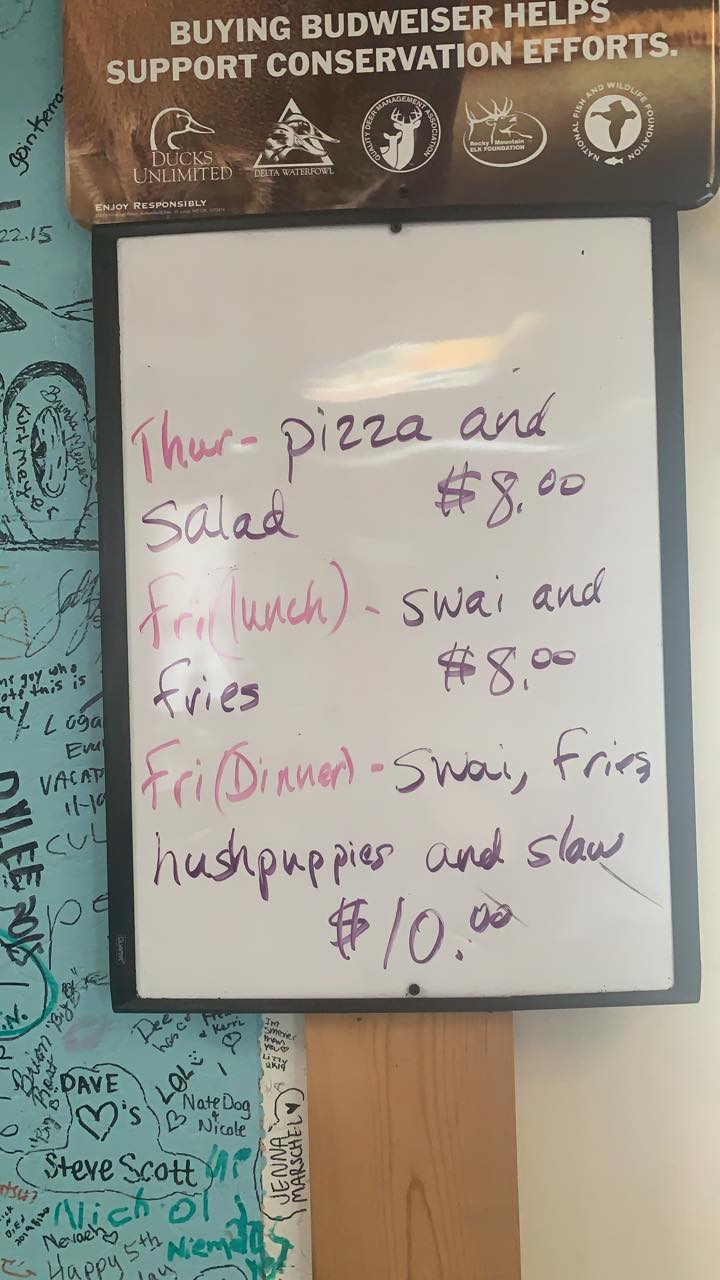 BUYING BUDWEISER HELPS
SUPPORT CONSERVATION EFFORTS.
DUCKS
UNLIMITED
DELTA WATERFOWL
QUALITY DEER MANAGEMENT ASSOCIATION
Rocky Mountain
ELK FOUNDATION
NATIONAL FISH AND WILDLIFE FOUNDATION
ENJOY RESPONSIBLY
22.15
Thur- pizza and
salad $8.00
Fri(lunch) - swai and
fries $8.00
Fri(Dinner) - swai, fries
hushpuppies and slaw
$10.00
Quartet
DAVE
♡'s
Steve Scott
LOL
Nate Dog
Nicole
I'm
smarter
than
you
Lizzy
JENNA
MARSCHEL
Nichol
Nevaeh
Happy 5th